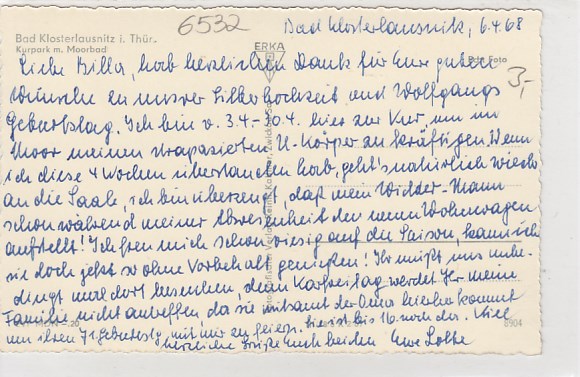 6532
Bad Klosterlausnitz i. Thür.
Kurpark m. Moorbad
ERKA
Echt Foto
3,-
Bad Klosterlausnitz, 6.4.68
Liebe Billa, hab herzlichen Dank für Eure guten
Wünsche zu unserer Silberhochzeit und Wolfgangs
Geburtstag. Ich bin v. 3.4.- 30.4. hier zur Kur, um im
Moor meinen strapazierten U-Körper zu kräftigen. Wenn
ich diese 4 Wochen überstanden hab, geht's natürlich wieder
an die Saale, ich bin überzeugt, daß mein Widder-Mann
schon während meiner Abwesenheit den neuen Wohnwagen
aufstellt! Ich freu mich schon riesig auf die Saison, kann ich
sie doch jetzt so ohne Vorbehalt genießen! Ihr müßt uns unbe-
dingt mal dort besuchen, denn Karfreitag werdet Ihr meine
Familie nicht antreffen, da sie mitsamt der Oma hierher kommt
um ihren 71. Geburtstg. mit mir zu feiern. Sie ist bis 16. noch da. Viel
herzliche Grüße Euch beiden Eure Lotte
8904